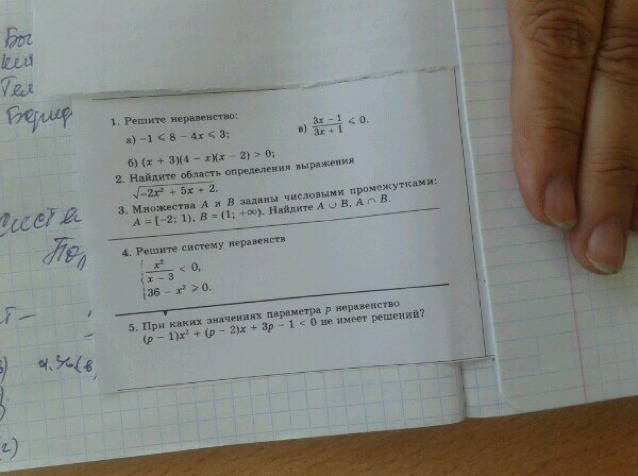 Вы
Тел
1. Решите неравенство:
а) −1 ⩽ 8 − 4x ⩽ 3;
в) (3x − 1)/(3x + 1) ⩽ 0.
б) (x + 3)(4 − x)(x − 2) > 0;
2. Найдите область определения выражения
√(−2x² + 5x + 2).
3. Множества A и B заданы числовыми промежутками:
A = [−2; 1), B = (1; +∞). Найдите A ∪ B, A ∩ B.
4. Решите систему неравенств
{ x²/(x − 3) < 0,
36 − x² ⩾ 0.
5. При каких значениях параметра p неравенство
(p − 1)x² + (p − 2)x + 3p − 1 < 0 не имеет решений?